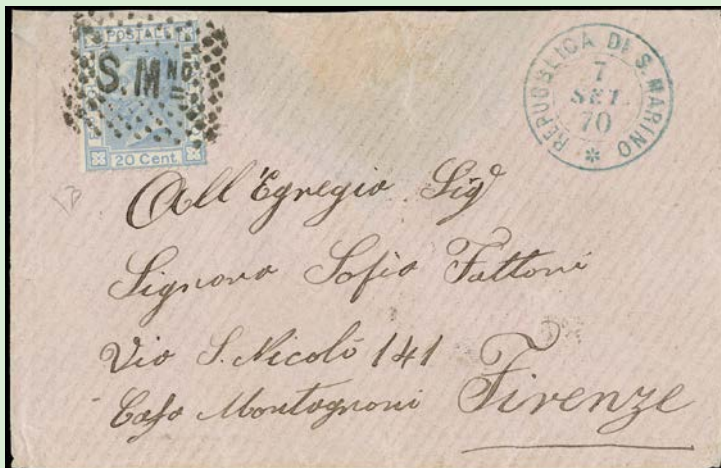 POSTAL
S. Mno
20 Cent.
REPUBBLICA DI S. MARINO
7
SET.
70
All'Egregia Sigª
Signora Sofia Fattori
Via S. Nicolò 141
Casa Montagnoni Firenze